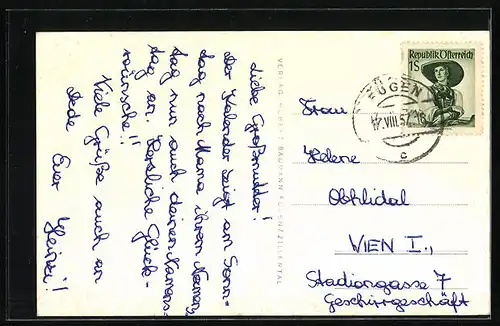 Liebe Großmutter!
Der Kalender zeigt am Sonn-
tag nach Mama ihren Namens-
tag nur auch deinen Namens-
tag an. Herzliche Glück-
wünsche!!
Viele Grüße auch an
Dede Euer Heinzi!
Republik Österreich
1S
FÜGEN
17.VIII.57.16
c
Frau
Helene
Obthlidal
WIEN I.,
Stadiongasse 7
Geschirrgeschäft